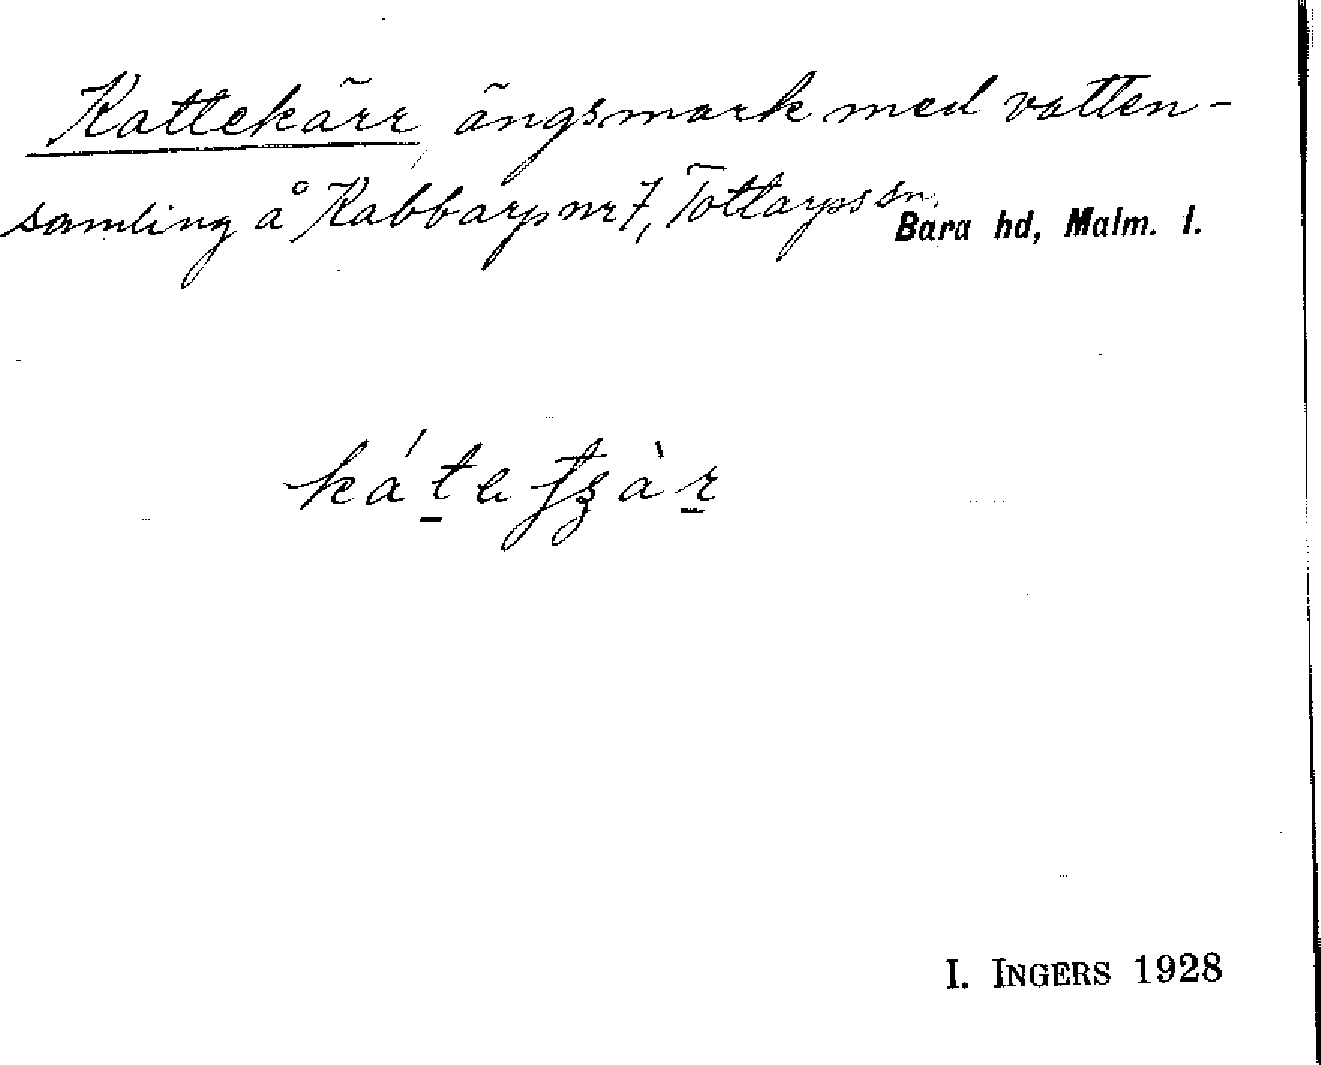 Kattekärr, ängsmark med vatten-
samling å Kabbarp nr 7, Tottarps sn.
Bara hd, Malm. l.
I. INGERS 1928